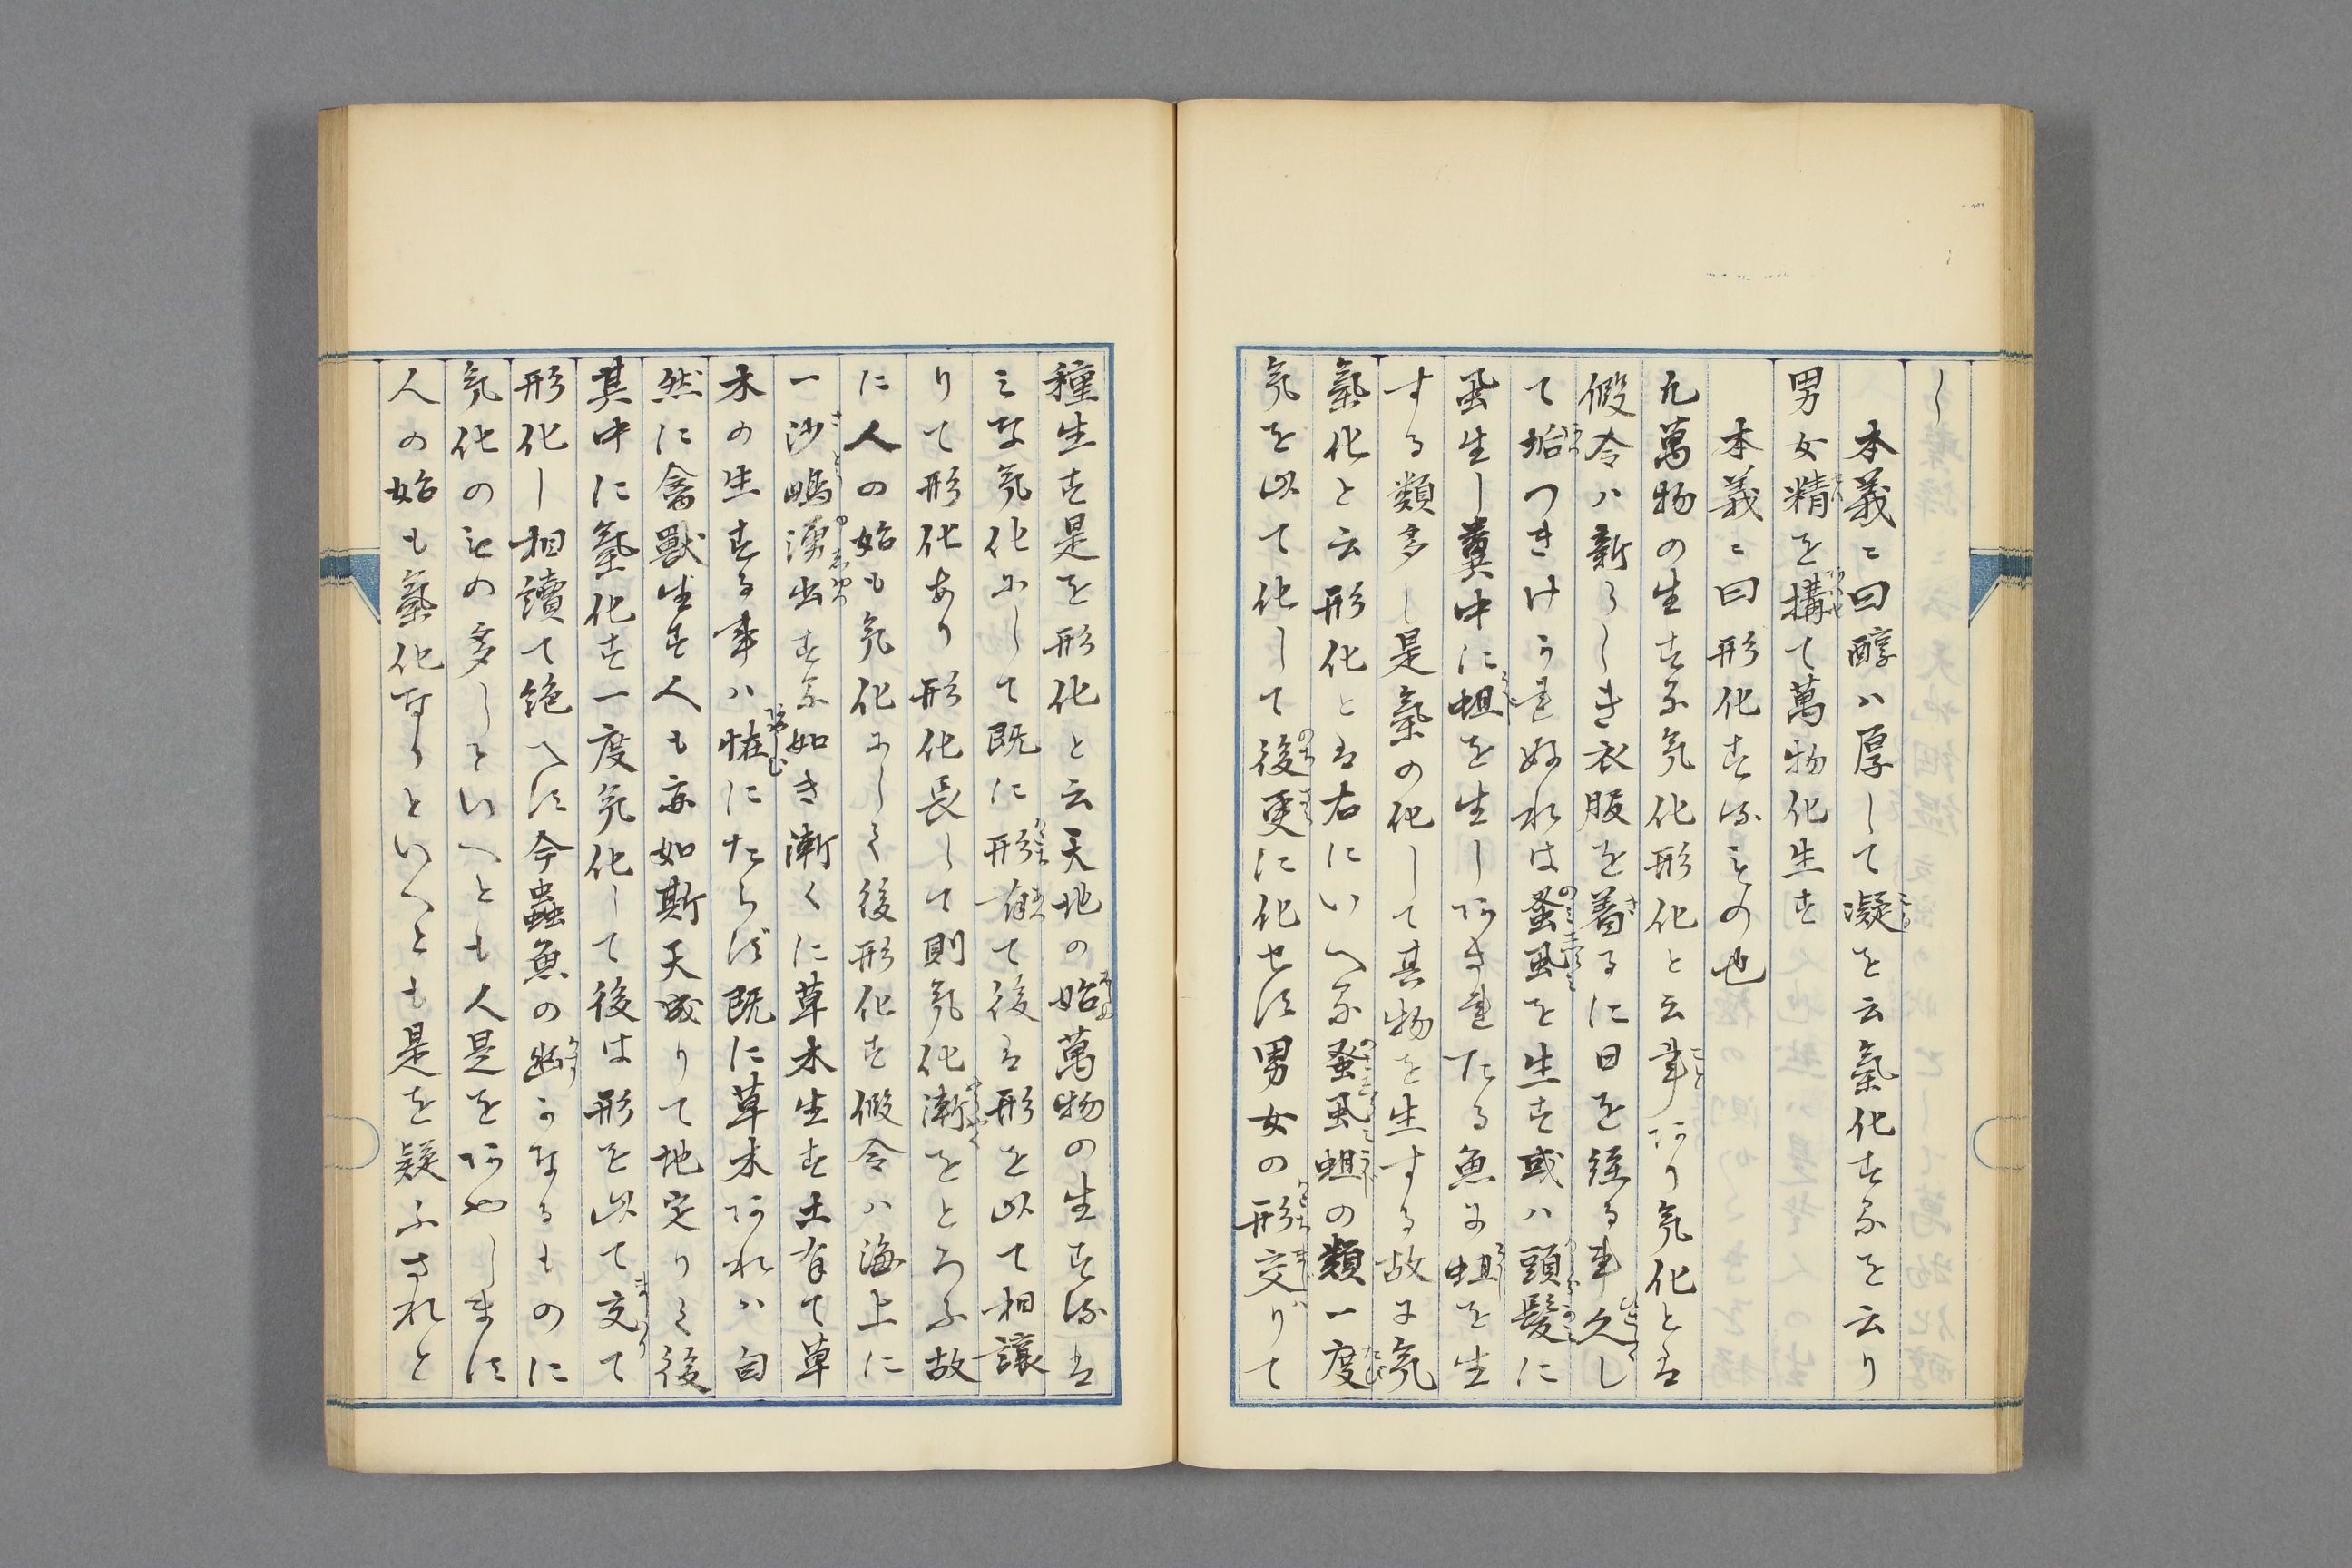 し
本義ニ曰醇ハ厚して凝を云氣化する を云り
男女精を搆て萬物化生す
本義ニ曰形化するもの也
凡萬物の生する氣化形化と云事あり氣化とは
假令ハ新らしき衣服を着るに日を経る事久し
て垢つきけかれぬれは蚤虱を生す或ハ頭髪に
虱生し糞中に蛆を生しあされたる魚に蛆を生
する類多し是氣の化して其物を生する故に氣
氣化と云形化とは右にいへる蚤虱蛆の類一度
氣を以て化して後更に化せす男女の形交りて
種生す是を形化と云天地の始萬物の生するは
みな氣化にして既に形有て後は形を以て相讓
りて形化あり形化長して則氣化漸をとろふ故
に人の始も氣化にして後形化す假令ハ海上に
一沙嶋湧出する如き漸くに草木生す土有て草
木の生する事ハ恠にたらず既に草木あれハ自
然に禽獸生す人も亦如斯天成りて地定りて後
其中に氣化す一度氣化して後は形を以て交て
形化し相讀て絶へす今蟲魚の幽かなるものに
氣化のもの多しといへとも人是をあやします
人の始も氣化なりといへとも是を疑ふされと